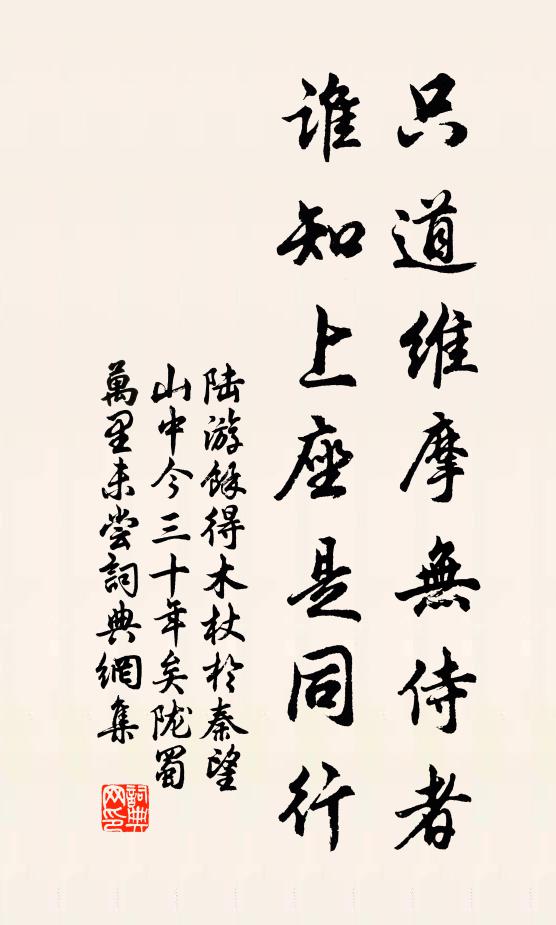 只道維摩無侍者
誰知上座是同行
陆游餘得木杖於秦望
山中今三十年矣陇蜀
萬里未嘗詞典網集
詞典
网印